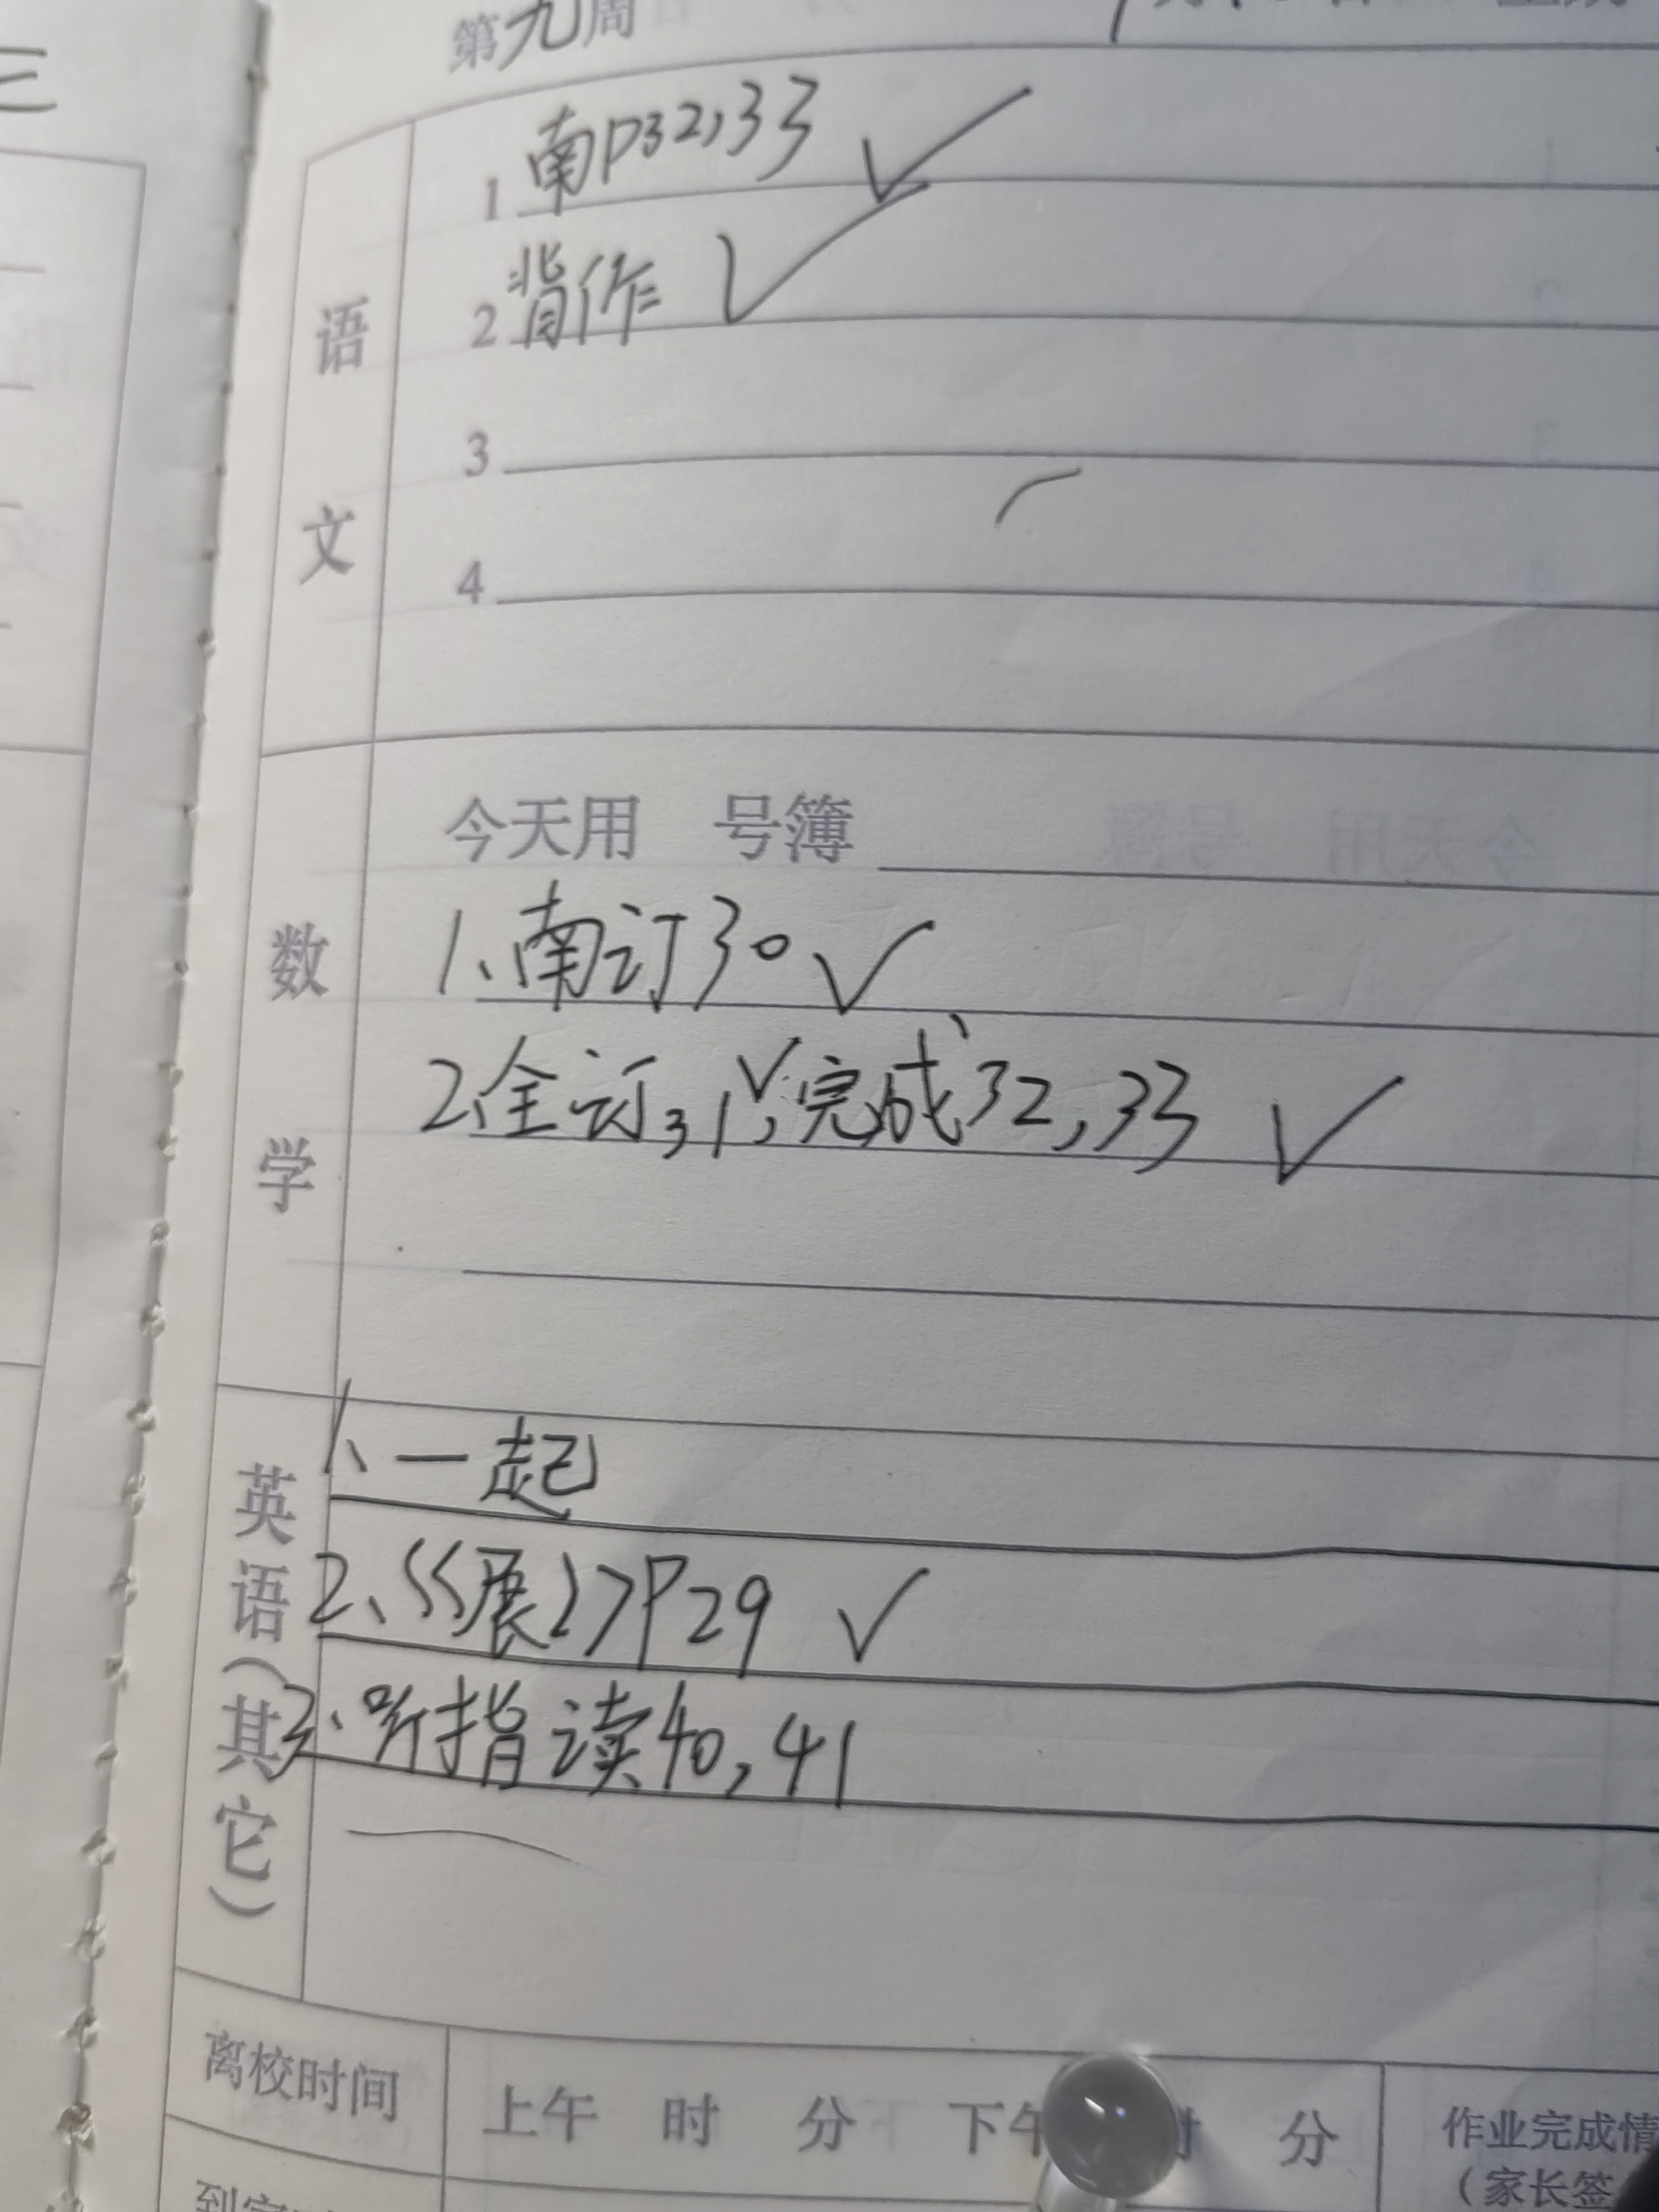 第九周
语文
1 南P32,33 ✓
2 背作 ✓
3
4
数学
今天用 号簿
1、南订30 ✓
2、全订31✓,完成32,33 ✓
英语(其它)
1、一起
2、《展》P29 ✓
3、听指读40,41
离校时间
上午 时 分 下午 时 分
作业完成情
(家长签